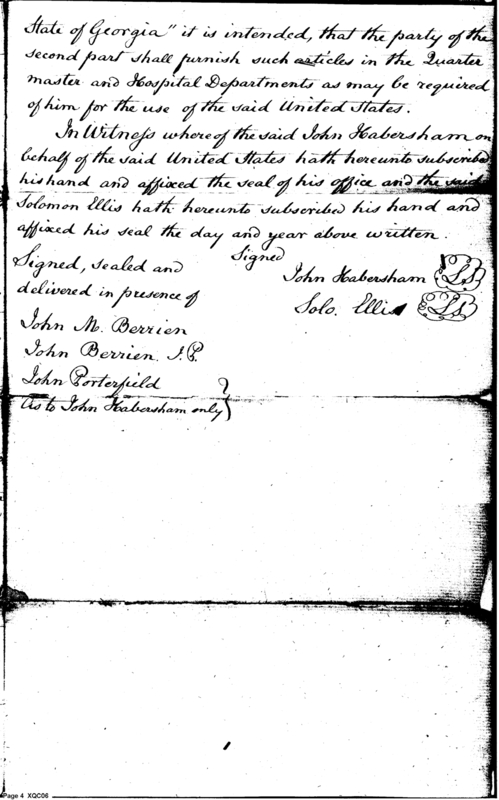 State of Georgia" it is intended, that the party of the
second part shall furnish such articles in the Quarter
master and Hospital Departments as may be required
of him for the use of the said United States.
In Witness whereof the said John Habersham on
behalf of the said United States hath hereunto subscribed
his hand and affixed the seal of his office and the said
Solomon Ellis hath hereunto subscribed his hand and
affixed his seal the day and year above written.
Signed
Signed, sealed and
delivered in presence of
John Habersham LS
Solo. Ellis LS
John M. Berrien
John Berrien J.P.
John Porterfield
As to John Habersham only
Page 4 XQC06